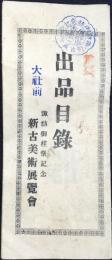 出品目錄
大社前
諏訪御柱祭記念
新古美術展覽會